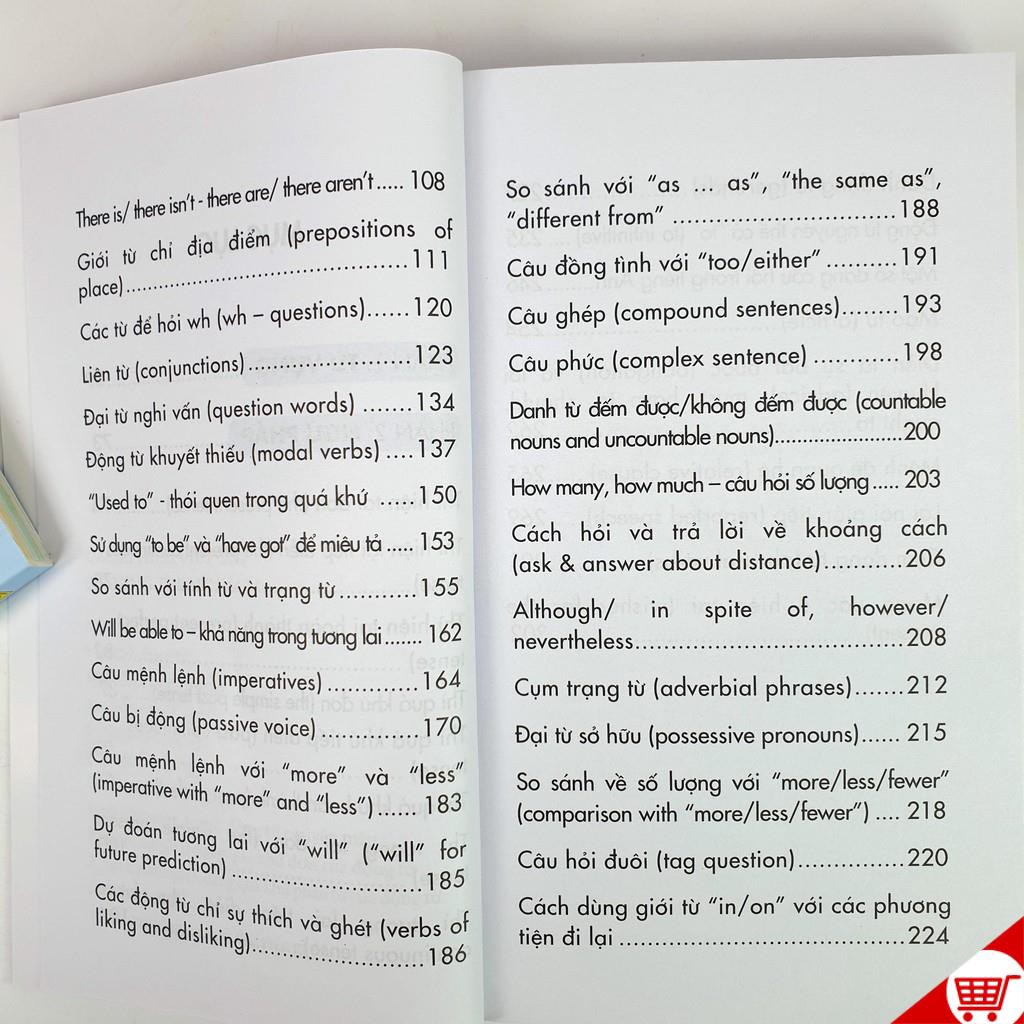 There is/ there isn't - there are/ there aren't..... 108
Giới từ chỉ địa điểm (prepositions of
place)....................................111
Các từ để hỏi wh (wh – questions)......120
Liên từ (conjunctions)....................123
Đại từ nghi vấn (question words) .......134
Động từ khuyết thiếu (modal verbs) ....137
"Used to" - thói quen trong quá khứ ......150
Sử dụng "to be" và "have got" để miêu tả ..... 153
So sánh với tính từ và trạng từ............155
Will be able to – khả năng trong tương lai....... 162
Câu mệnh lệnh (imperatives) .............164
Câu bị động (passive voice) ..............170
Câu mệnh lệnh với "more" và "less"
(imperative with "more" and "less")...... 183
Dự đoán tương lai với "will" ("will" for
future prediction) ..........................185
Các động từ chỉ sự thích và ghét (verbs of
liking and disliking)..........................186
So sánh với "as ... as", "the same as",
"different from" ..............................188
Câu đồng tình với "too/either" ..........191
Câu ghép (compound sentences)........193
Câu phức (complex sentence) ............198
Danh từ đếm được/không đếm được (countable
nouns and uncountable nouns)........................200
How many, how much – câu hỏi số lượng..... 203
Cách hỏi và trả lời về khoảng cách
(ask & answer about distance)...........206
Although/ in spite of, however/
nevertheless....................................208
Cụm trạng từ (adverbial phrases).......212
Đại từ sở hữu (possessive pronouns)...... 215
So sánh về số lượng với "more/less/fewer"
(comparison with "more/less/fewer") .... 218
Câu hỏi đuôi (tag question)...............220
Cách dùng giới từ "in/on" với các phương
tiện đi lại ......................................224